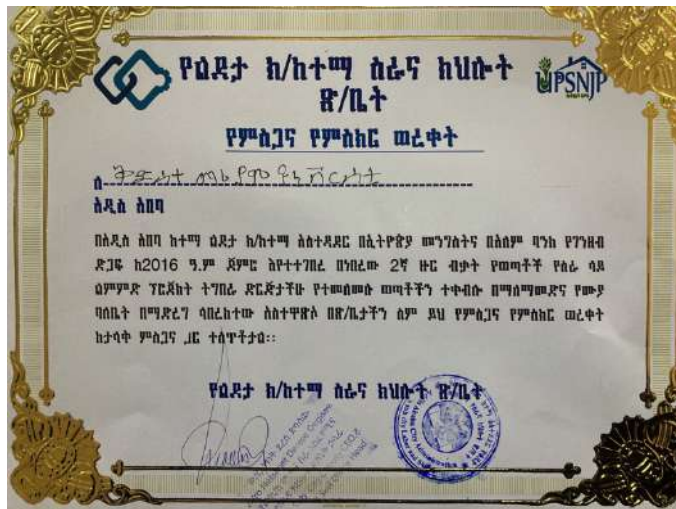 የልደታ ክ/ከተማ ስራና ክህሎት
ጽ/ቤት
UPSNJP
የምስጋና የምስክር ወረቀት
ለ ቅድስት ማርያም ዩኒቨርሲቲ
አዲስ አበባ
በአዲስ አበባ ከተማ ልደታ ክ/ከተማ አስተዳደር በኢትዮጵያ መንግስትና በአለም ባንክ የገንዘብ
ድጋፍ ከ2016 ዓ.ም ጀምሮ እየተተገበረ በነበረው 2ኛ ዙር ብቃት የወጣቶች የስራ ላይ
ልምምድ ፕሮጀክት ትግበራ ድርጅታችሁ የተመለመሉ ወጣቶችን ተቀብሎ በማለማመድና የሙያ
ባለቤት በማድረግ ላበረከተው አስተዋጽኦ በጽ/ቤታችን ስም ይህ የምስጋና የምስክር ወረቀት
ከታላቅ ምስጋና ጋር ተሰጥቶታል፡፡
የልደታ ክ/ከተማ ስራና ክህሎት ጽ/ቤት